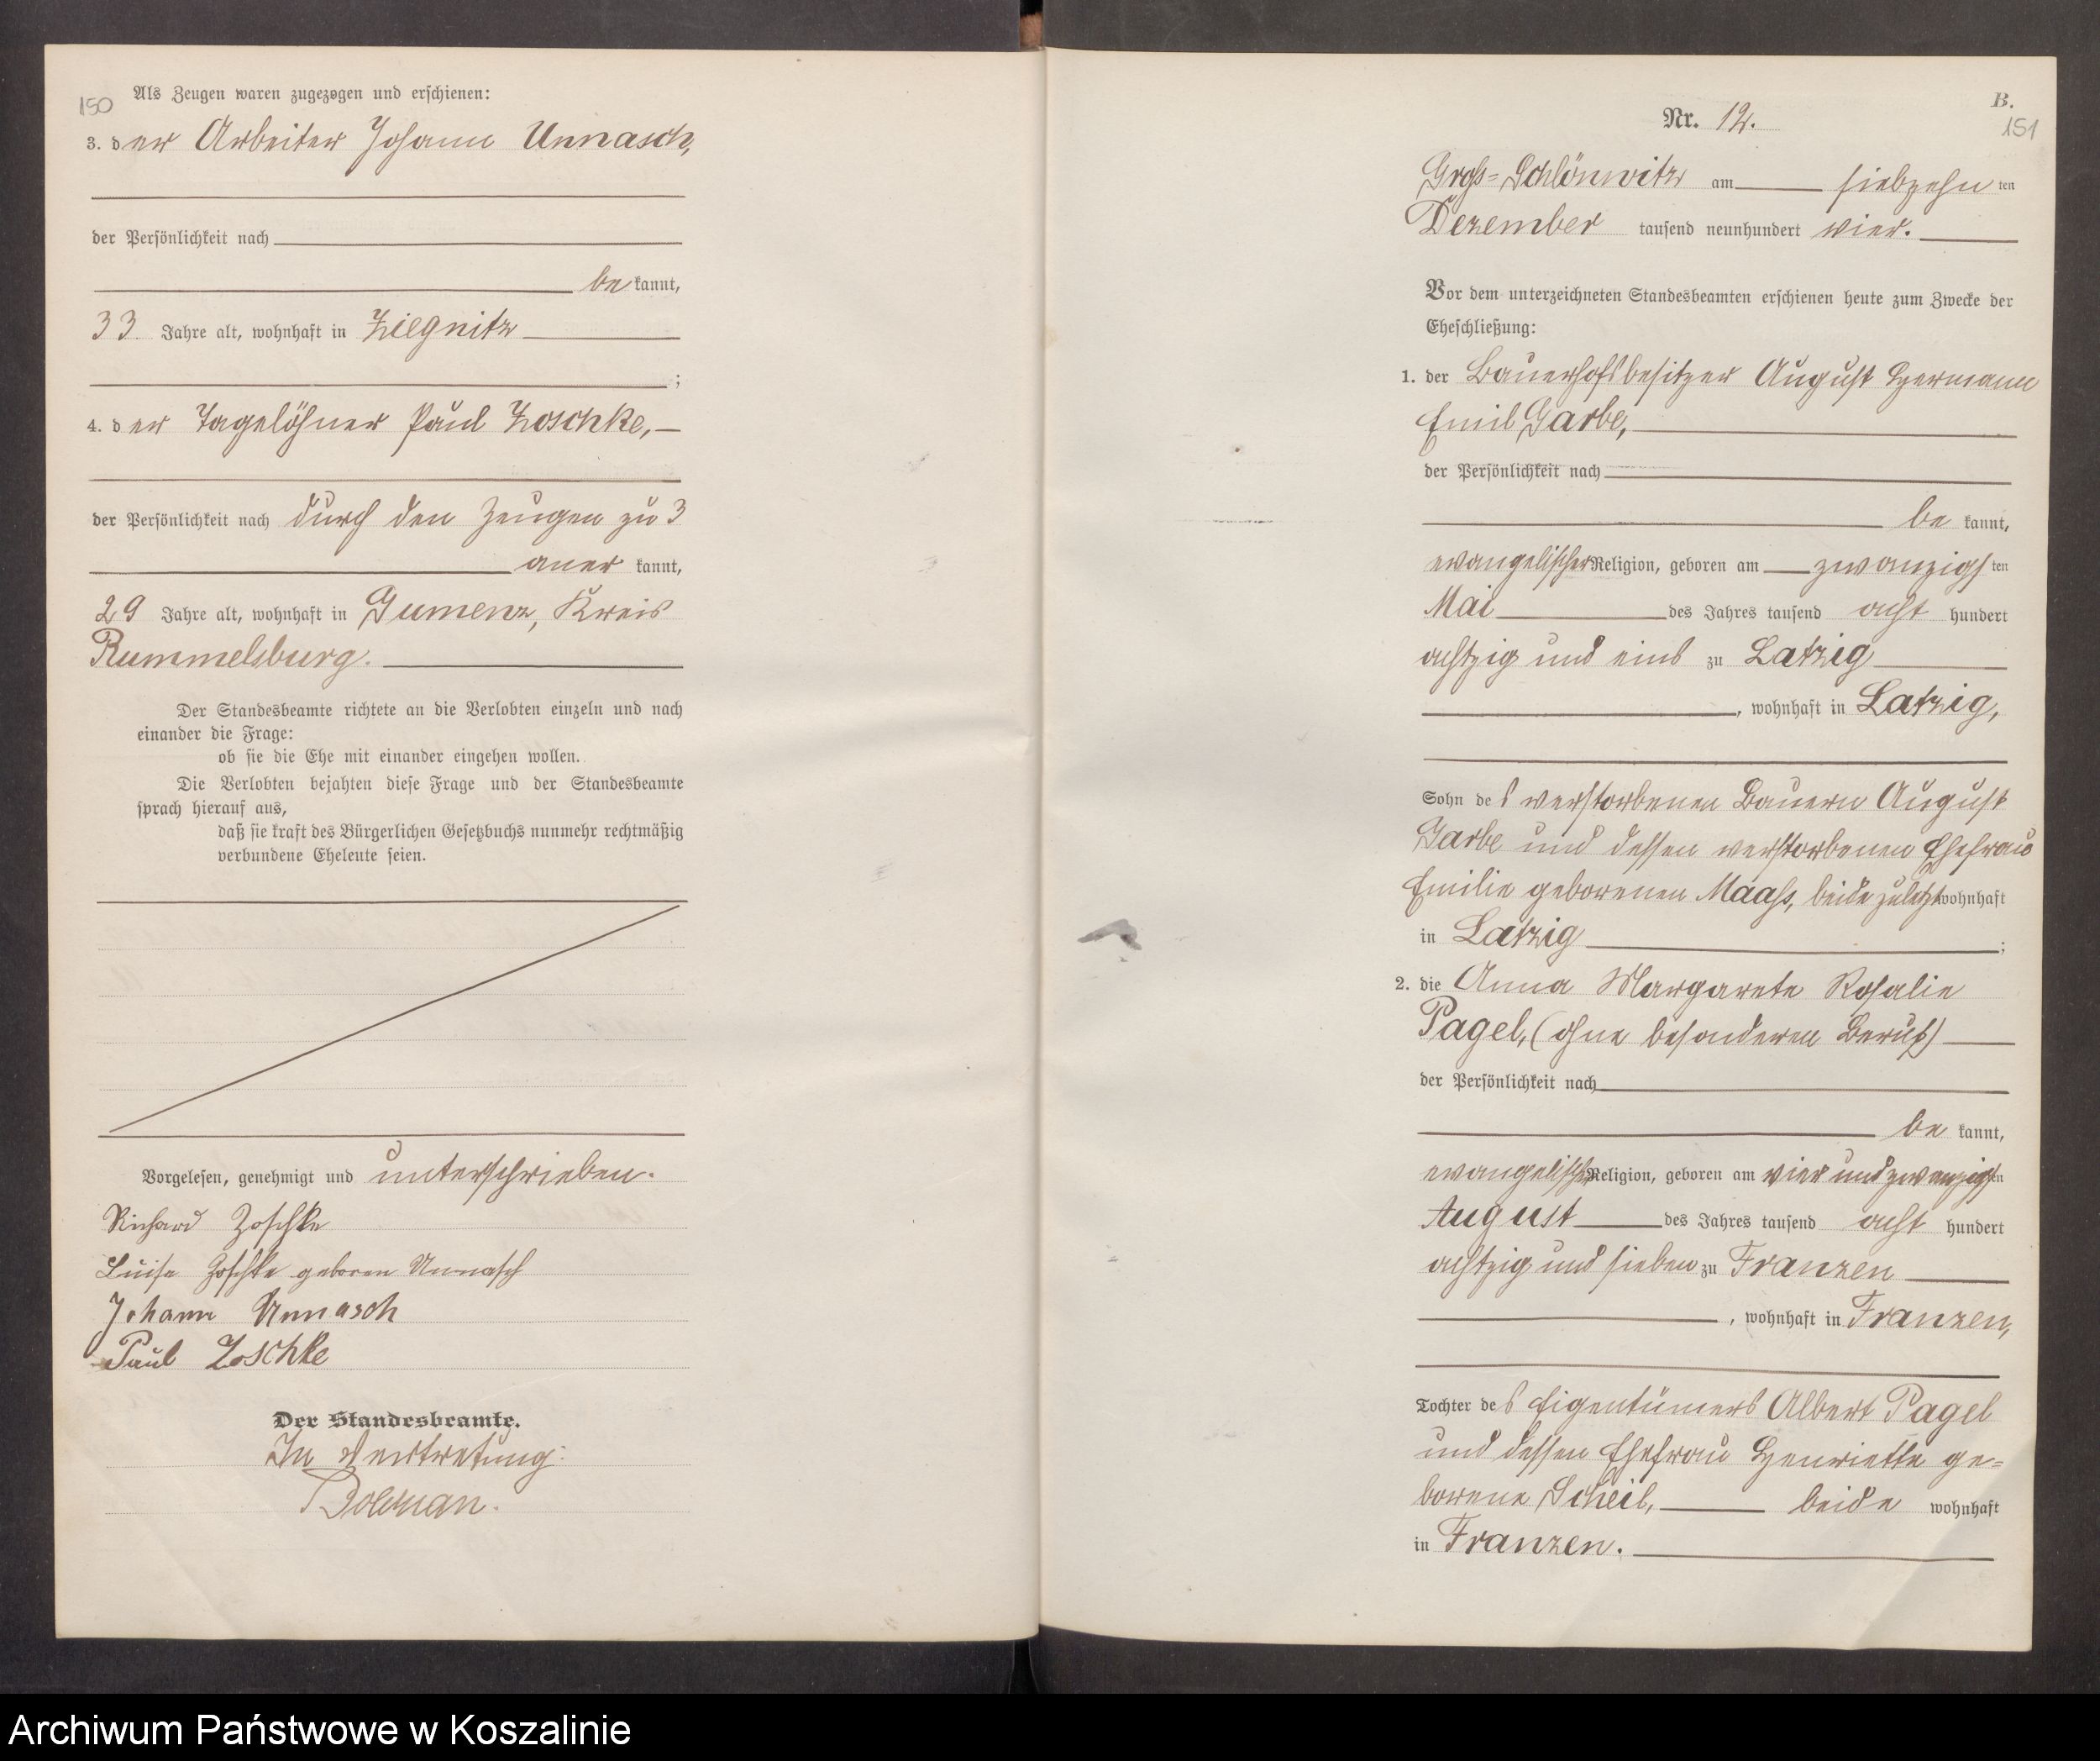 150
Als Zeugen waren zugezogen und erschienen:
3. der Arbeiter Johann Unnasch,
der Persönlichkeit nach
be kannt,
33 Jahre alt, wohnhaft in Ziegnitz
;
4. der Tagelöhner Paul Zoschke,
der Persönlichkeit nach durch den Zeugen zu 3
aner kannt,
29 Jahre alt, wohnhaft in Gumenz, Kreis
Rummelsburg.
Der Standesbeamte richtete an die Verlobten einzeln und nach
einander die Frage:
ob sie die Ehe mit einander eingehen wollen.
Die Verlobten bejahten diese Frage und der Standesbeamte
sprach hierauf aus,
daß sie kraft des Bürgerlichen Gesetzbuchs nunmehr rechtmäßig
verbundene Eheleute seien.
Vorgelesen, genehmigt und unterschrieben.
Richard Zoschke
Luise Zoschke geboren Unnasch
Johann Unnasch
Paul Zoschke
Der Standesbeamte.
In Vertretung:
B.
151
Nr. 12.
Groß-Schlönwitz am siebzehn ten
Dezember tausend neunhundert vier.
Vor dem unterzeichneten Standesbeamten erschienen heute zum Zwecke der
Eheschließung:
1. der Bauerhofsbesitzer August Hermann
Emil Garbe,
der Persönlichkeit nach
be kannt,
evangelischer Religion, geboren am zwanzigs ten
Mai des Jahres tausend acht hundert
achtzig und eins zu Latzig
, wohnhaft in Latzig,
Sohn des verstorbenen Bauern August
Garbe und dessen verstorbenen Ehefrau
Emilie geborenen Maaß, beide zuletzt wohnhaft
in Latzig ;
2. die Anna Margarete Rosalie
Pagel, (ohne besonderen Beruf)
der Persönlichkeit nach
be kannt,
evangelischer Religion, geboren am vier und zwanzigsten
August des Jahres tausend acht hundert
achtzig und sieben zu Franzen
, wohnhaft in Franzen,
Tochter des Eigentümers Albert Pagel
und dessen Ehefrau Henriette ge=
borene Scheil, beide wohnhaft
in Franzen.
Archiwum Państwowe w Koszalinie